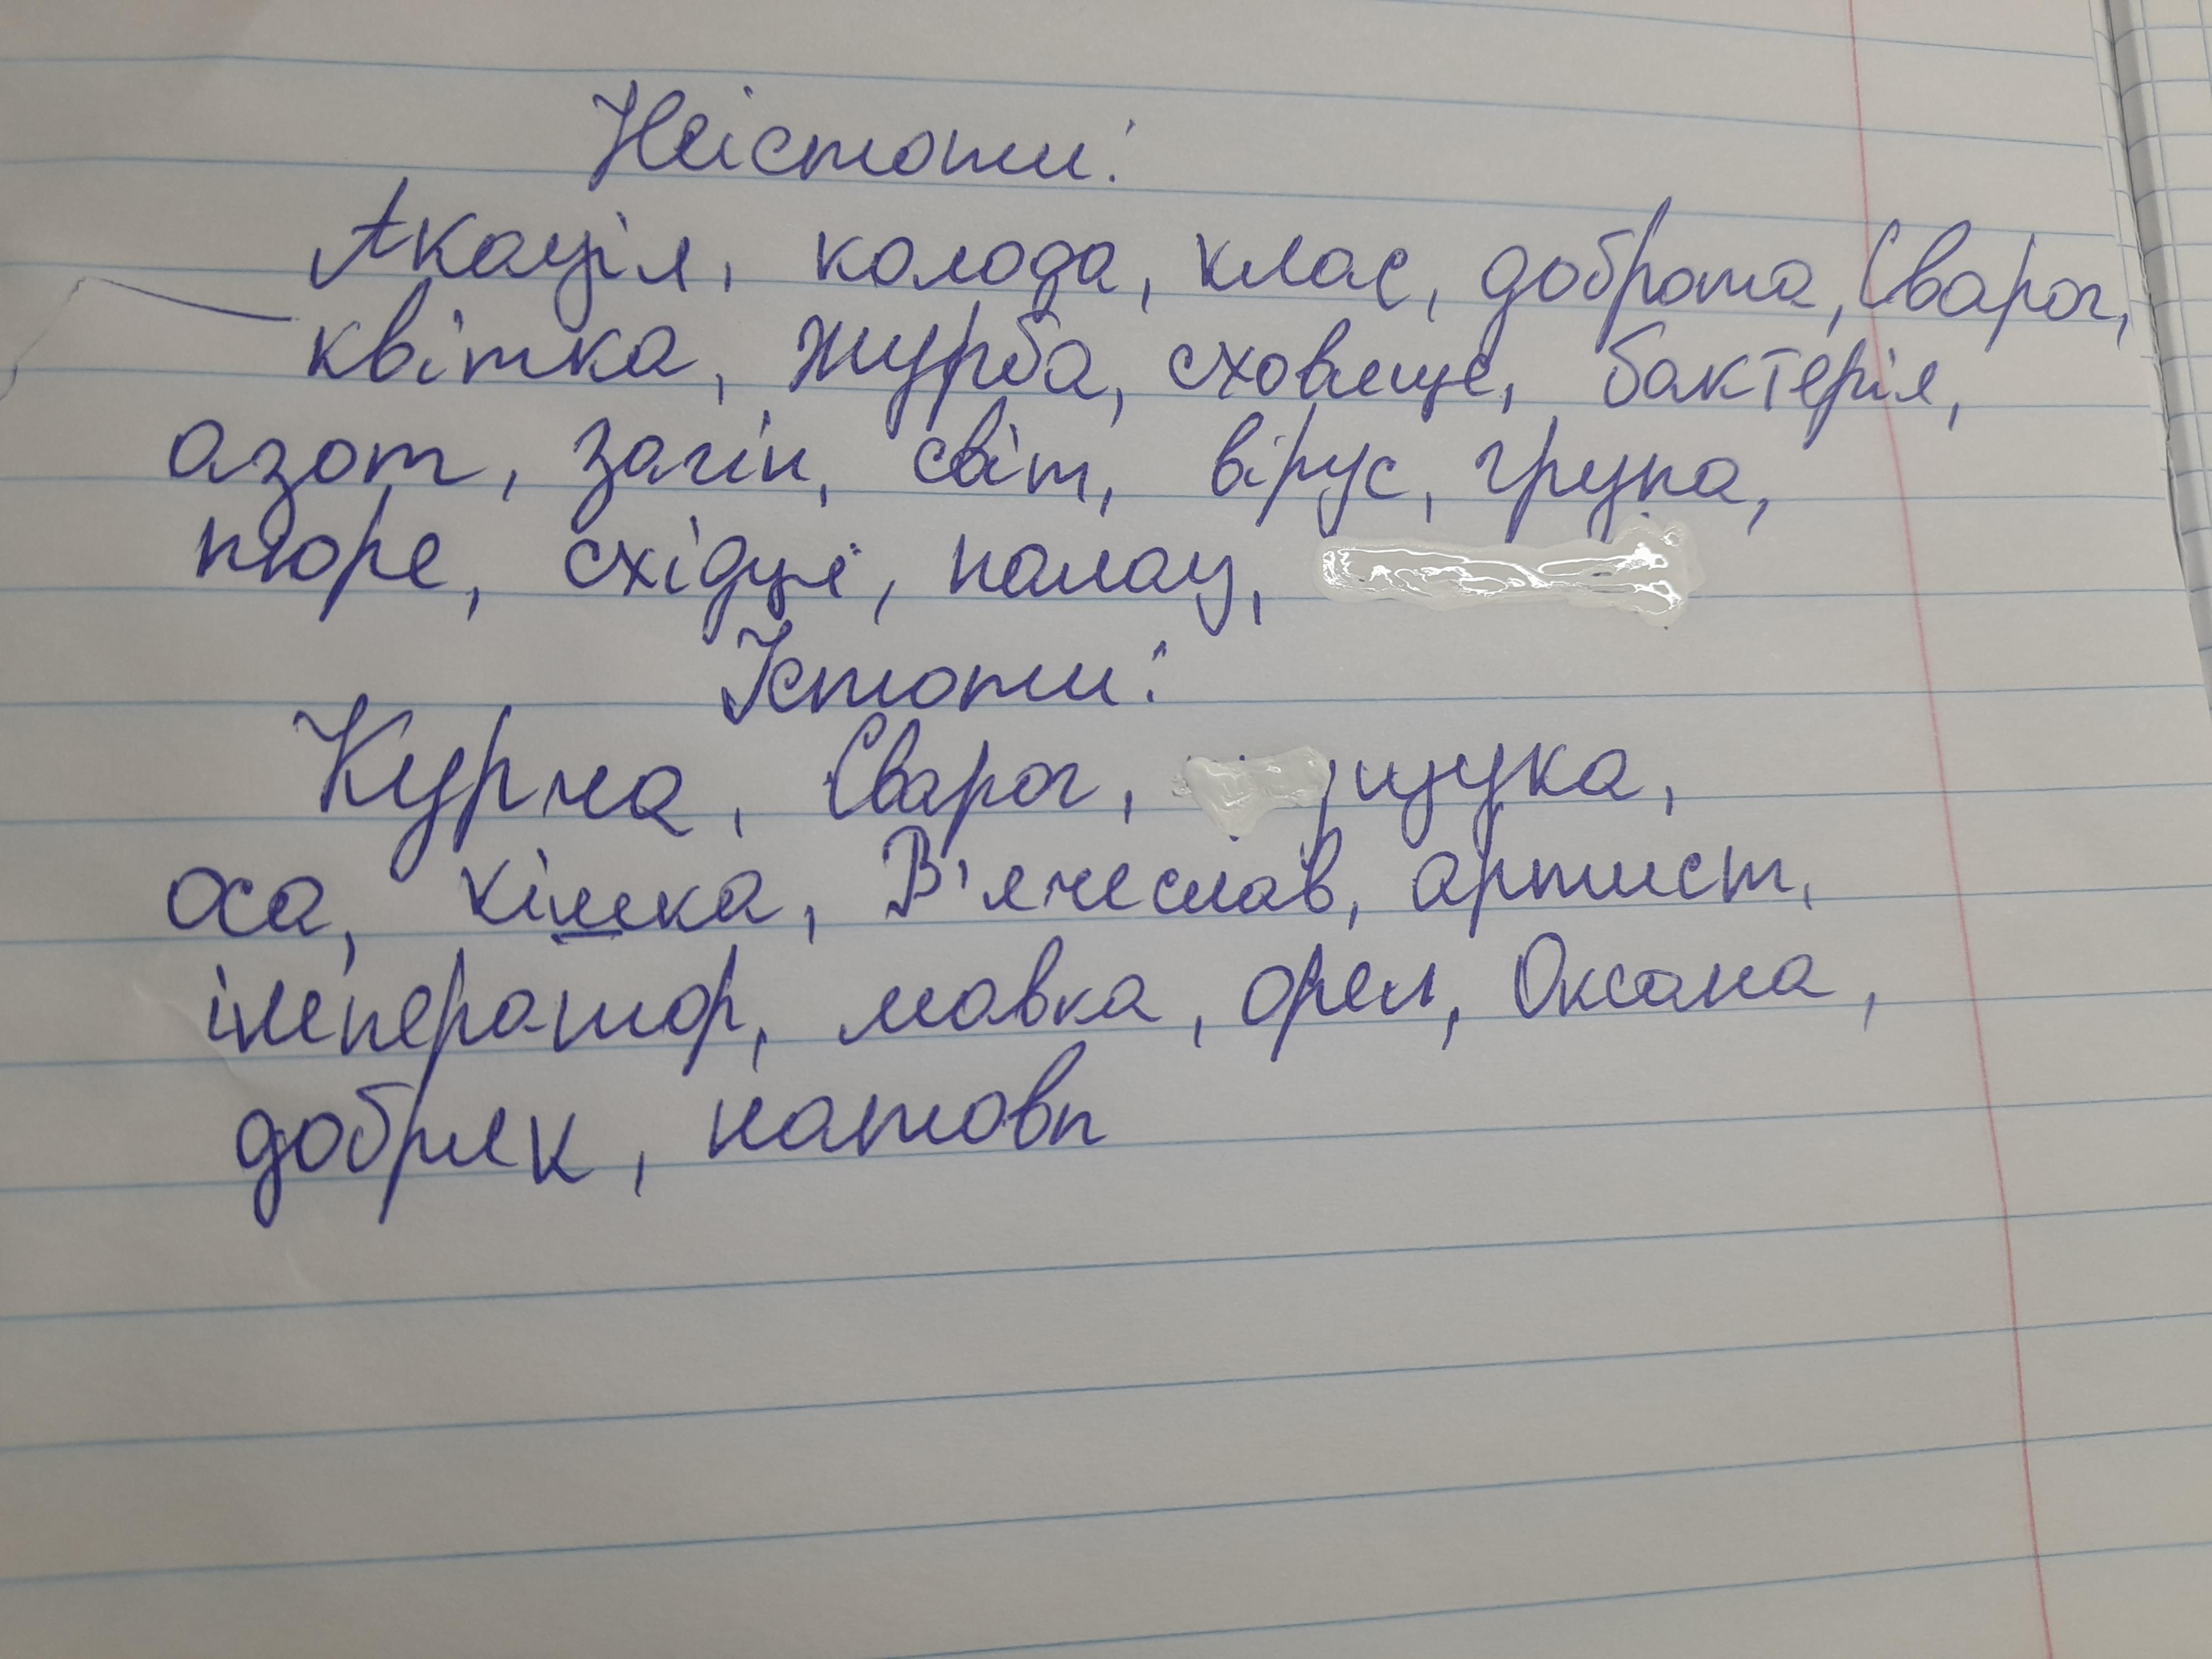 Неістоти:
Акація, колода, клас, доброта, Сварог,
квітка, журба, сховище, бактерія,
азот, загін, світ, вірус, група,
пюре, східці, палац,
Істоти:
Курча, Сварог, щука,
оса, кішка, В'ячеслав, артист,
імператор, мавка, орел, Оксана,
добряк, натовп